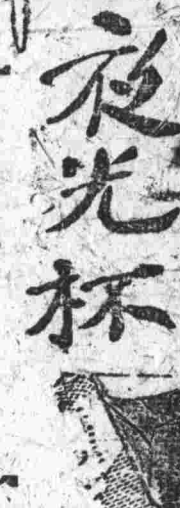 夜光杯